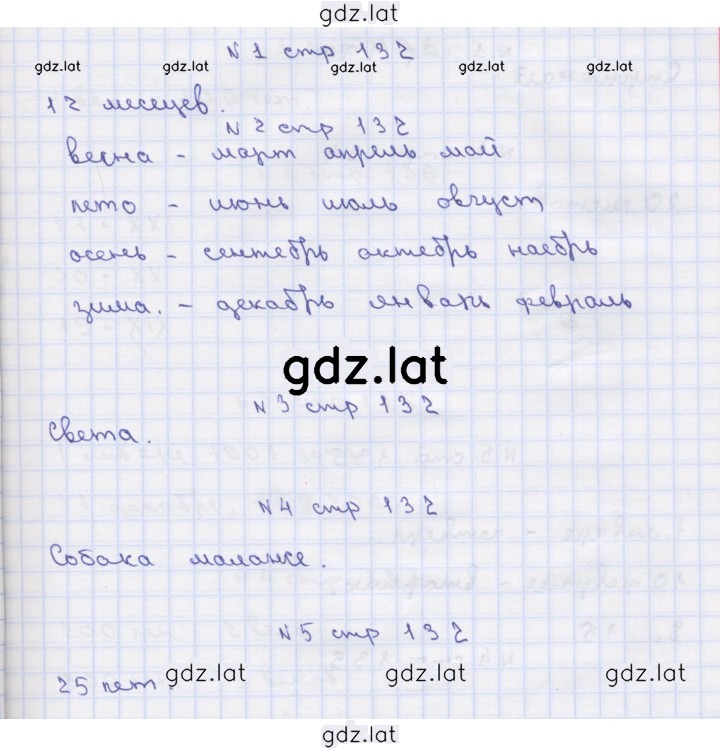 gdz.lat
N 1 стр 132
gdz.lat gdz.lat gdz.lat gdz.lat gdz.lat
12 месецев.
N 2 стр 132
весна - март апрель май
лето - июнь июль овчуст
осень - сентебрь октебрь наебрь
зима. - декабрь январь февраль
gdz.lat
N 3 стр 132
Света.
N 4 стр 132
Собака маложе.
N 5 стр 132
25 лет. gdz.lat gdz.lat gdz.lat
gdz.lat